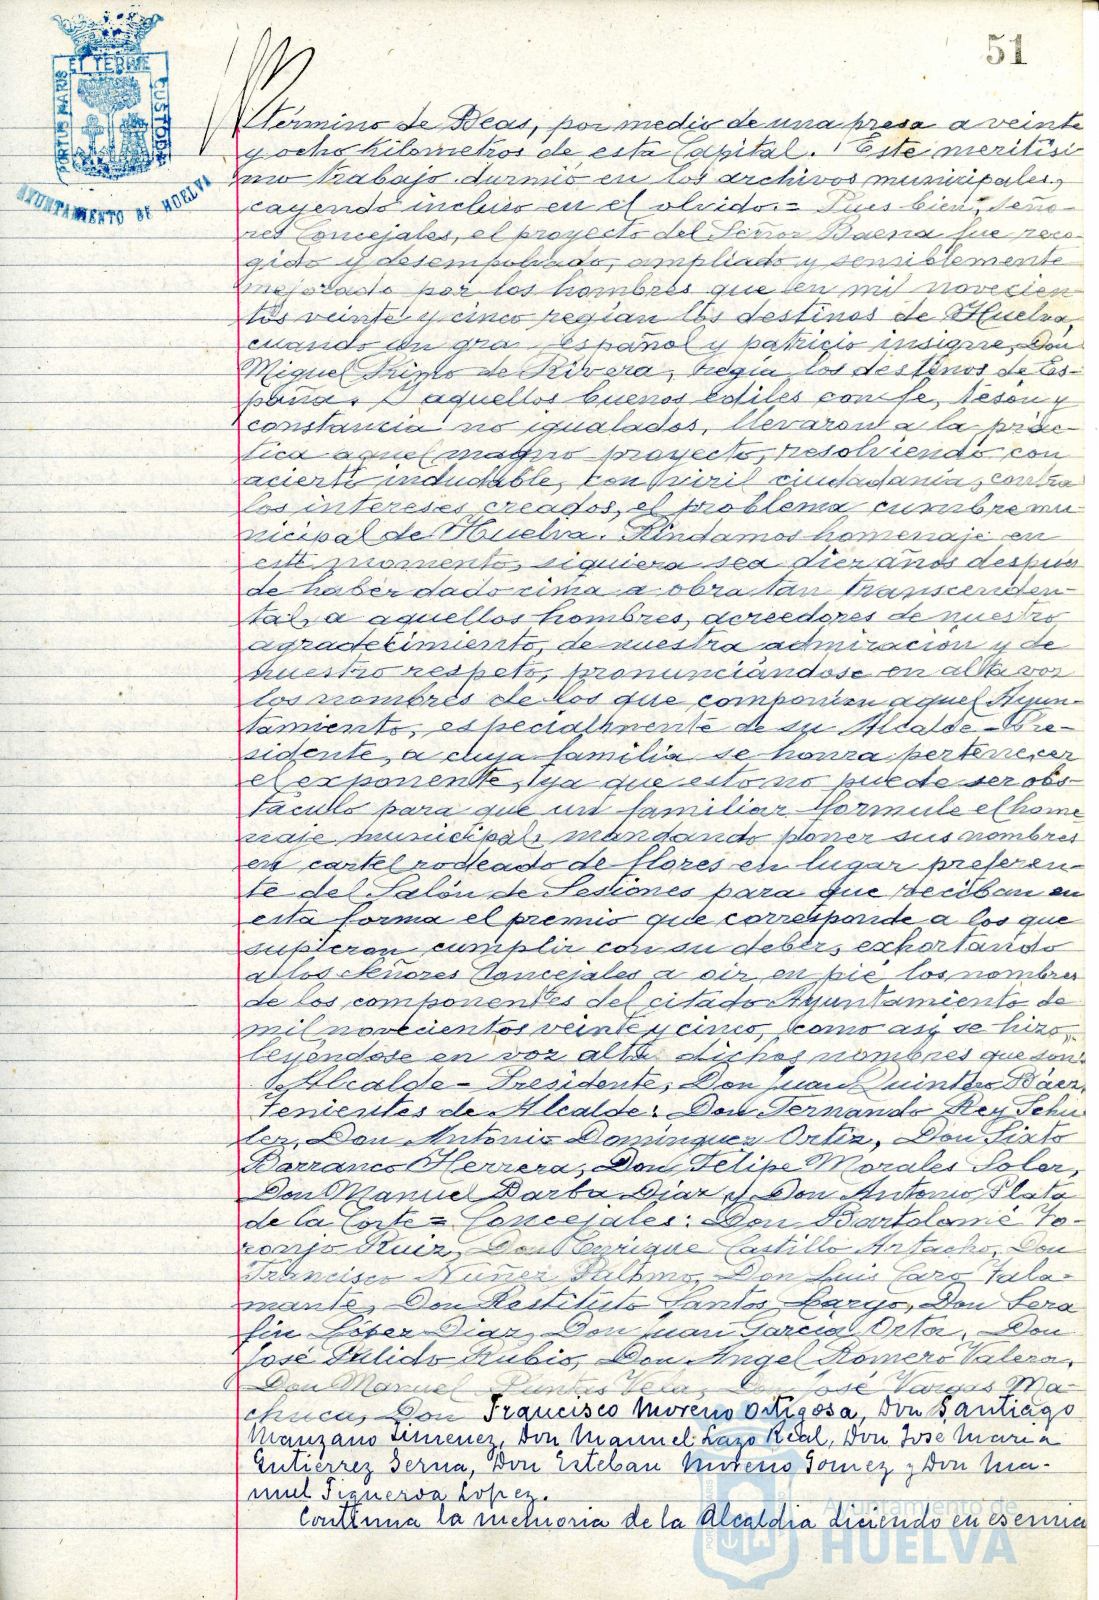 51
PORTUS MARIS ET TERRAE CUSTODIA
AYUNTAMIENTO DE HUELVA
término de Beas, por medio de una presa a veinte
y ocho kilometros de esta Capital. Este meritísi-
mo trabajo durmió en los archivos municipales,
cayendo incluso en el olvido.= Pues bien, Seño-
res Concejales, el proyecto del Señor Baena fue reco-
gido y desempolvado, ampliado y sensiblemente
mejorado por los hombres que en mil novecien-
tos veinte y cinco regían los destinos de Huelva,
cuando un gra español y patricio insigne, Don
Miguel Primo de Rivera, regía los destinos de Es-
paña. Y aquellos buenos ediles con fe, tesón y
constancia no igualados, llevaron a la prác-
tica aquel magno proyecto, resolviendo con
acierto indudable, con viril ciudadanía, contra
los intereses creados, el problema cumbre mu-
nicipal de Huelva. Rindamos homenaje en
este momento, siquiera sea diez años después
de haber dado cima a obra tan transcenden-
tal, a aquellos hombres, acreedores de nuestro
agradecimiento, de nuestra admiración y de
nuestro respeto, pronunciándose en alta voz
los nombres de los que componían aquel Ayun-
tamiento, especialmente de su Alcalde-Pre-
sidente, a cuya familia se honra pertenecer
el exponente, ya que esto no puede ser obs-
táculo para que un familiar formule el home
naje municipal, mandando poner sus nombres
en cartel rodeado de flores en lugar preferen-
te del Salón de Sesiones para que reciban en
esta forma el premio que corresponde a los que
supieron cumplir con su deber, exhortando
a los Señores Concejales a oir en pié los nombres
de los componentes del citado Ayuntamiento de
mil novecientos veinte y cinco, como así se hizo,
leyéndose en voz alta dichos nombres que son:
Alcalde-Presidente, Don Juan Quintero Báez,
Tenientes de Alcalde: Don Fernando Rey Schu-
ler, Don Antonio Domínguez Ortiz, Don Sixto
Barranco Herrera, Don Felipe Morales Soler,
Don Manuel Barba Díaz, y Don Antonio Plata
de la Corte = Concejales: Don Bartolomé To-
ronjo Ruiz, Don Enrique Castillo Artacho, Don
Francisco Núñez Palomo, Don Luis Caro Tala-
mante, Don Restituto Santos Largo, Don Sera
fín López Díaz, Don Juan García Orta, Don
José Pulido Rubio, Don Angel Romero Valera,
Don Manuel Puntas Vela, Don José Vargas Ma-
chuca, Don Francisco Moreno Ortigosa, Don Santiago
Manzano Jimenez, Don Manuel Lazo Real, Don Jose Maria
Gutierrez Serna, Don Esteban Moreno Gomez y Don Ma-
nuel Figueroa Lopez.
Continua la memoria de la Alcaldia diciendo en esencia
Ayuntamiento de
HUELVA